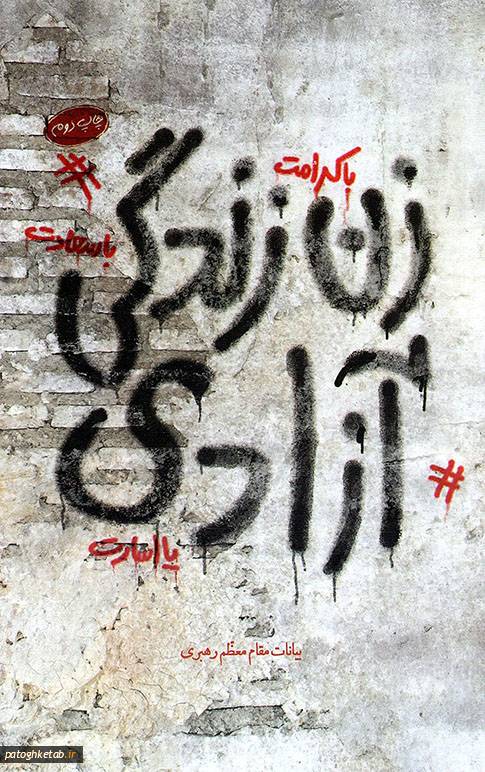 چاپ دوم
#
با کرامت
زن زندگی
با سعادت
آزادی
#
یا اسارت
بیانات مقام معظّم رهبری
patoghketab.ir